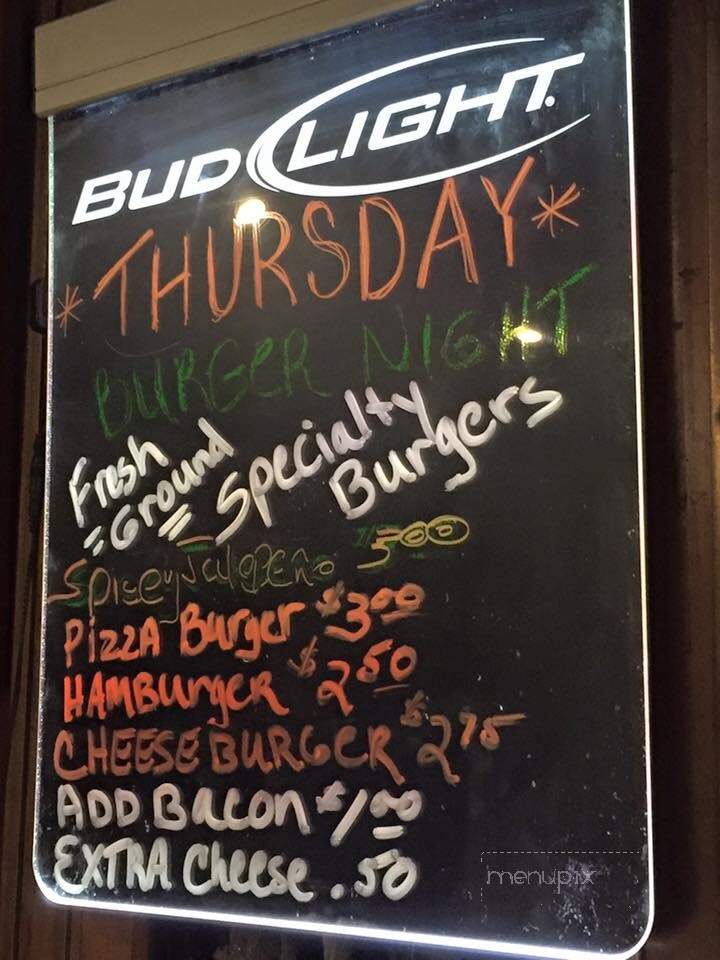 BUD LIGHT
*THURSDAY*
BURGER NIGHT
Fresh
=Ground= Specialty
Burgers
Spicey Jalapeno 300
PIZZA Burger $3.00
HAMBURgER $2.50
CHEESEBURGER $2.75
ADD BACON $1.00
EXTRA Cheese .50
menupix